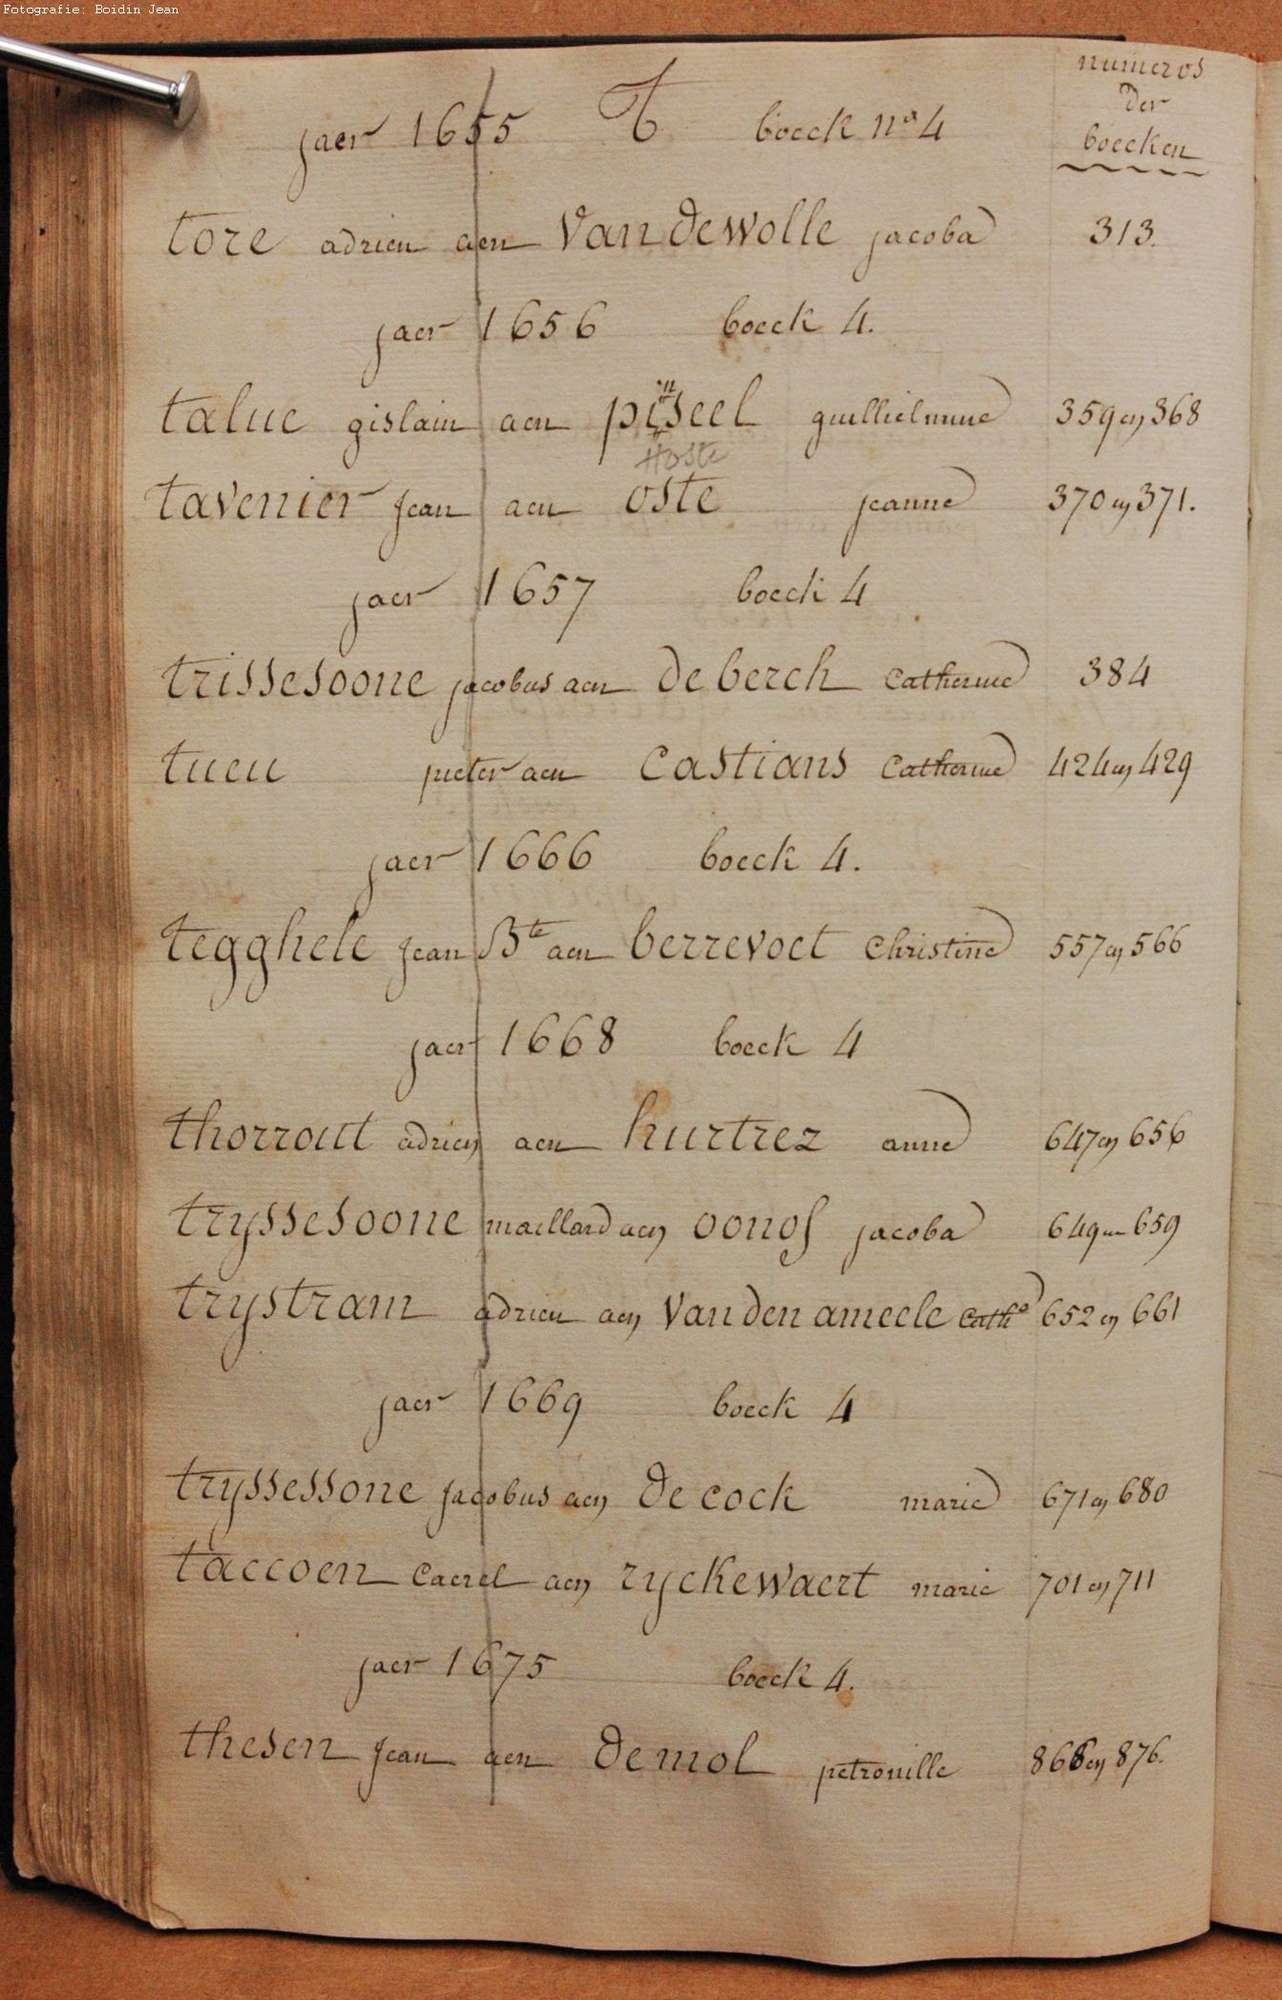 Fotografie: Boidin Jean
numeros
der
boecken
jaer 1655 T boeck n° 4
tore adrien aen Van de wolle jacoba 313.
jaer 1656 boeck 4.
taluc gislain aen piseel guillielmine 359 en 368
Hoste
tavenier jean aen oste jeanne 370 en 371.
jaer 1657 boeck 4
trissesoone jacobus aen de berch Catherine 384
tueu pieter aen Castians Catherine 424 en 429
jaer 1666 boeck 4.
tegghele jean Bte aen berrevoet Christine 557 en 566
jaer 1668 boeck 4
thorrout adrien aen hurtrez anne 647 en 656
tryssesoone maillard aen oonof jacoba 649 en 659
trystram adrien aen Van den ameele Cathe 652 en 661
jaer 1669 boeck 4
tryssessone jacobus aen de cock marie 671 en 680
taccoen Caerel aen ryckewaert marie 701 en 711
jaer 1675 boeck 4.
thesen jean aen de mol petronille 866 en 876.